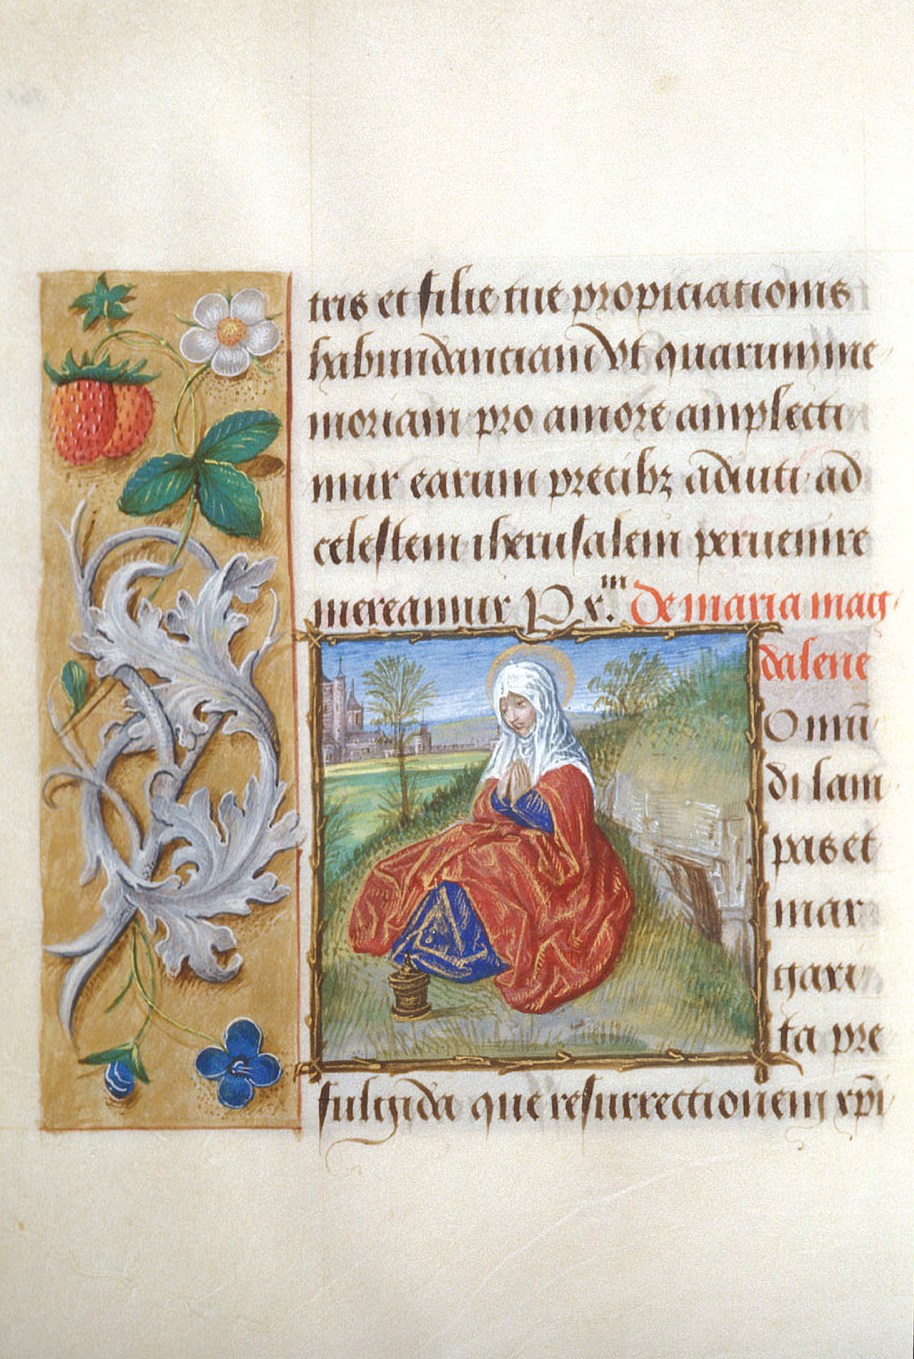 tris et filie tue propiciationis
habundanciam Vt quarum me
moriam pro amore amplecti
mur earum precibꝫ adiuti ad
celestem iherusalem peruenire
mereamur P xᵐ. de maria mag
dalene
O mūdi lampas et mar
gari
ta pre
fulgida que resurrectionem xp̄i